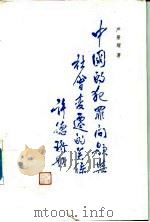 严景耀 著
中国的犯罪问题与
社会变迁的关系
许德珩